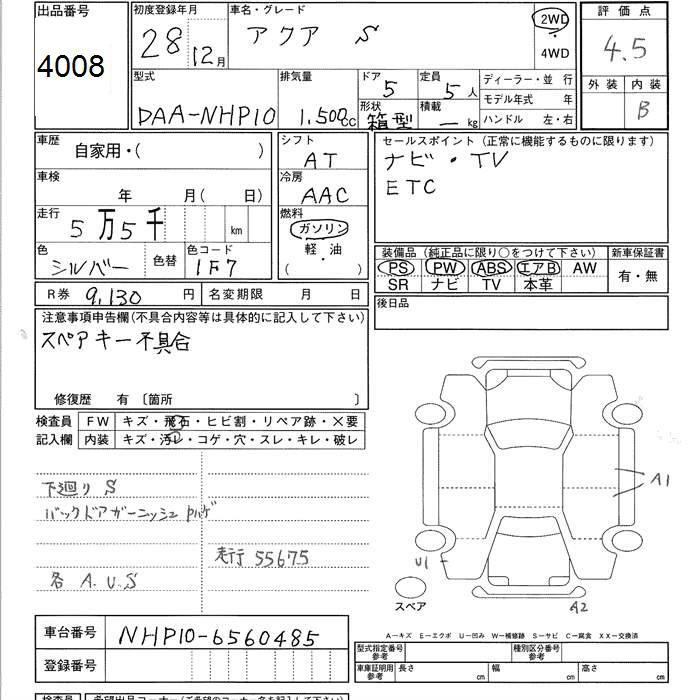 出品番号
4008
初度登録年月
28 12月
車名・グレード
アクア S
2WD
・
4WD
評価点
4.5
外装 内装
B
型式
DAA-NHP10
排気量
1,500cc
ドア
5
定員
5人
形状
箱型
積載
— kg
ディーラー・並行
モデル年式 年
ハンドル 左・右
車歴
自家用・( )
車検
年 月( 日)
走行
5万5千 km
色
シルバー
色替
色コード
1F7
シフト
AT
冷房
AAC
燃料
ガソリン
軽・油
( )
セールスポイント(正常に機能するものに限ります)
ナビ・TV
ETC
装備品(純正品に限り○をつけて下さい)
PS PW ABS エアB AW
SR ナビ TV 本革
新車保証書
有・無
後日品
R券 9,130 円
名変期限 月 日
注意事項申告欄(不具合内容等は具体的に記入して下さい)
スペアキー不具合
修復歴 有〔箇所 〕
検査員
記入欄
FW キズ・飛石・ヒビ割・リペア跡・×要
内装 キズ・汚レ・コゲ・穴・スレ・キレ・破レ
下廻り S
バックドアガーニッシュ Pハゲ
走行 55675
各 A.U.S
A1
U1
A2
スペア
A—キズ E—エクボ U—凹み W—補修跡 S—サビ C—腐食 XX—交換済
車台番号
NHP10-6560485
登録番号
型式指定番号
参考
種別区分番号
参考
車庫証明用
参考
長さ cm
幅 cm
高さ cm